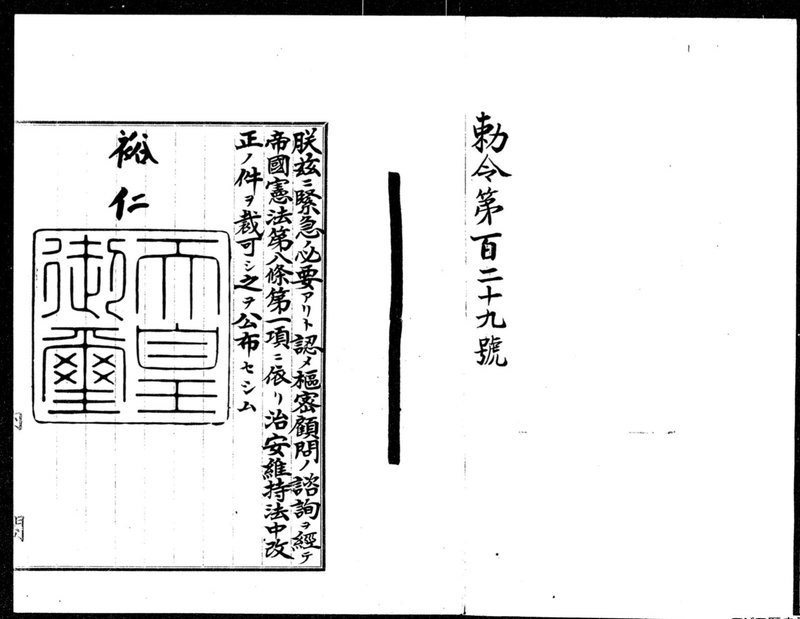 勅令第百二十九號
朕玆ニ緊急ノ必要アリト認メ樞密顧問ノ諮詢ヲ經テ
帝國憲法第八條第一項ニ依リ治安維持法中改
正ノ件ヲ裁可シ之ヲ公布セシム
裕仁
天皇
御璽